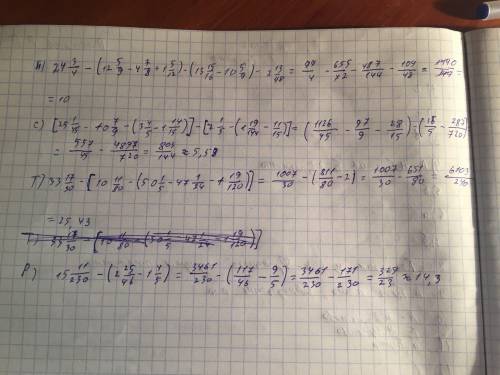 24 3/4 - (12 5/9 - 4 7/8 + 1 5/12) - (13 15/16 - 10 5/9) - 2 13/48 = 99/4 - 655/72 - 487/144 - 109/48 = 1440/144 =
= 10
c) [25 1/45 - 10 7/9 - (3 4/5 - 1 14/15)] - [7 1/5 - (1 19/144 - 11/15)] = (1126/45 - 97/9 - 28/15) - (18/5 - 287/720)
= 537/45 - 4897/720 = 803/144 ≈ 5,58
T) 33 17/30 - [10 11/80 - (50 1/5 - 47 1/24 - 1 19/120)] = 1007/30 - (811/80 - 2) = 1007/30 - 651/80 = 6103/240
= 25,43
P) 15 11/230 - (2 25/46 - 1 4/5) = 3461/230 - (117/46 - 9/5) = 3461/230 - 171/230 = 329/23 ≈ 14,3